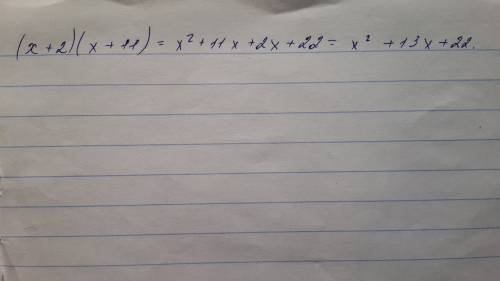 (x+2)(x+11) = x²+11x+2x+22= x² +13x+22.